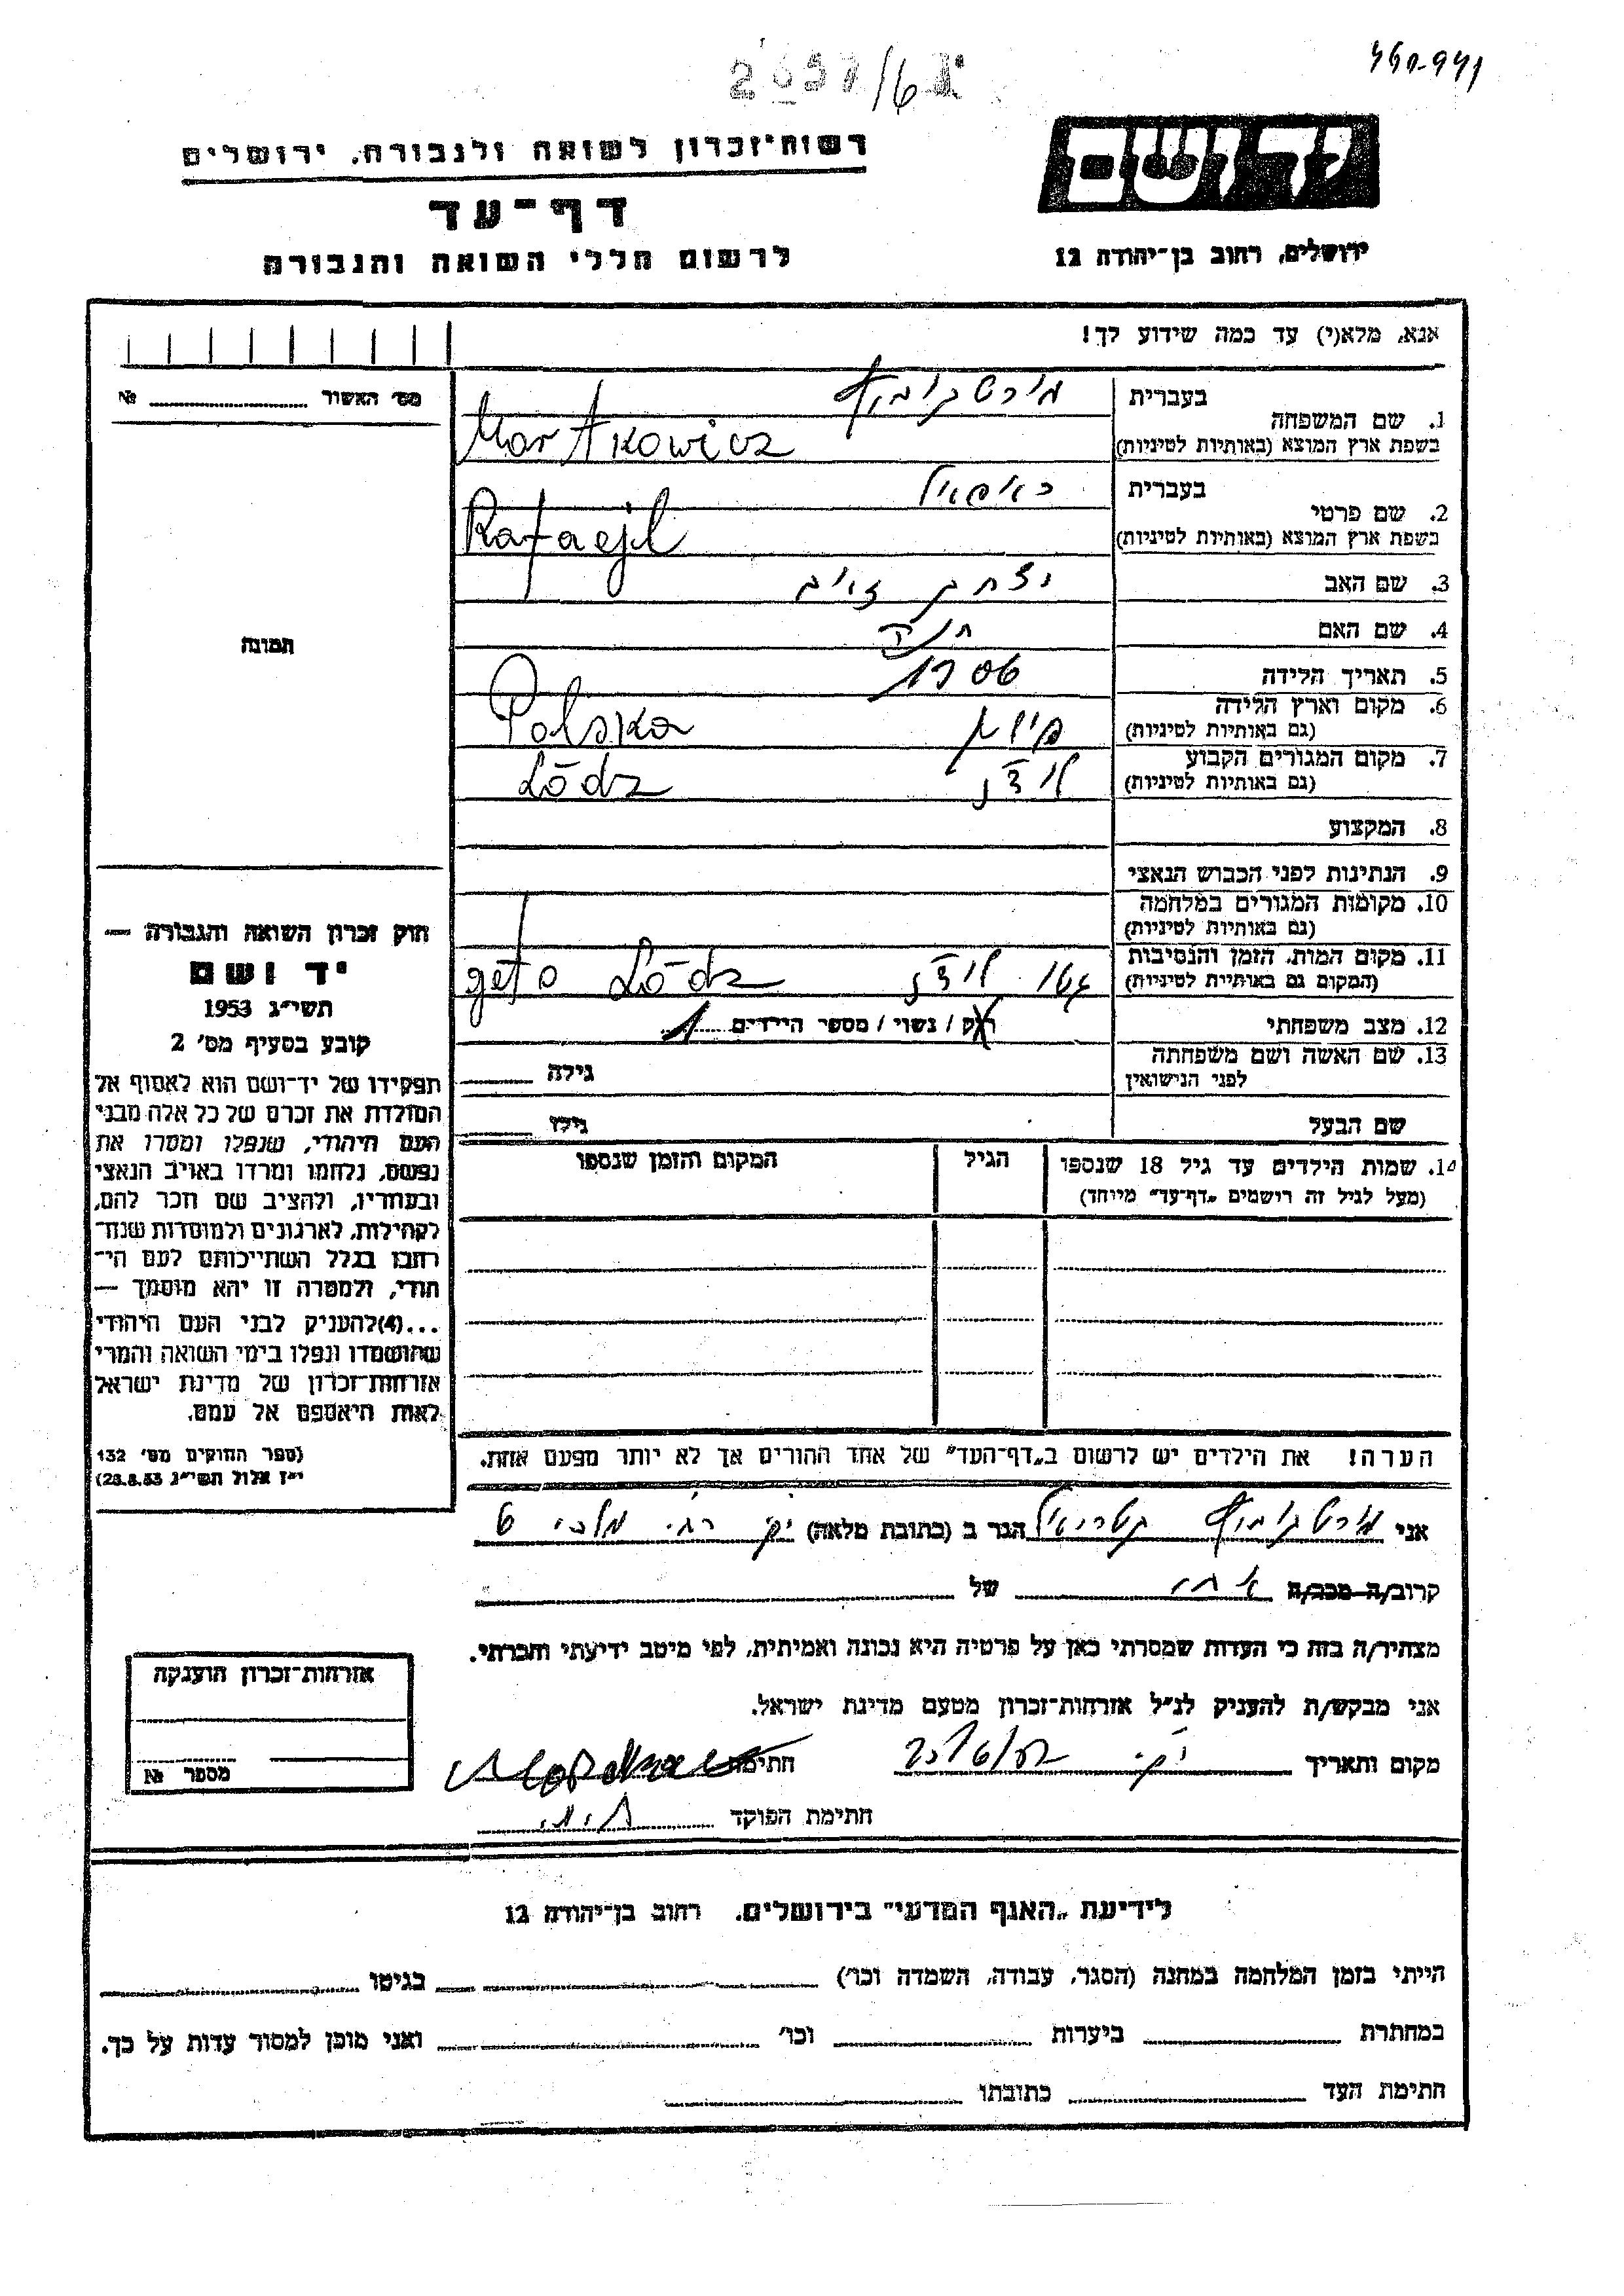 2697/61
460-941
יד ושם
רשות־זכרון לשואה ולגבורה, ירושלים
דף־עד
לרשום חללי השואה והגבורה
ירושלים, רחוב בן־יהודה 12
אנא, מלא(י) עד כמה שידוע לך!
מס׳ האשור №
1. שם המשפחה
בעברית
בשפת ארץ המוצא (באותיות לטיניות)
Martkowicz
2. שם פרטי
בעברית
בשפת ארץ המוצא (באותיות לטיניות)
Rafaejl
3. שם האב יצחק זאב
4. שם האם
5. תאריך הלידה 1906
6. מקום וארץ הלידה
(גם באותיות לטיניות)
פולין Polska
7. מקום המגורים הקבוע
(גם באותיות לטיניות)
לודז Lódz
8. המקצוע
9. הנתינות לפני הכבוש הנאצי
10. מקומות המגורים במלחמה
(גם באותיות לטיניות)
11. מקום המות, הזמן והנסיבות
(המקום גם באותיות לטיניות)
גטו לודז geto Lódz
12. מצב משפחתי רוק / נשוי / מספר הילדים 1
13. שם האשה ושם משפחתה
לפני הנישואין
גילה
שם הבעל גילו
14. שמות הילדים עד גיל 18 שנספו
(מעל לגיל זה רישמים „דף־עד״ מיוחד)
הגיל
המקום והזמן שנספו
תמונה
חוק זכרון השואה והגבורה —
יד ושם
תשי״ג 1953
קובע בסעיף מס׳ 2
תפקידו של יד־ושם הוא לאסוף אל
המולדת את זכרם של כל אלה מבני
העם היהודי, שנפלו ומסרו את
נפשם, נלחמו ומרדו באויב הנאצי
ובעוזריו, ולהציב שם וזכר להם,
לקהילות, לארגונים ולמוסדות שנח־
רבו בגלל השתייכותם לעם הי־
הודי, ולמטרה זו יהא מוסמך —
...(4)להעניק לבני העם היהודי
שהושמדו ונפלו בימי השואה והמרי
אזרחות־זכרון של מדינת ישראל
לאות היאספם אל עמם.
(ספר החוקים מס׳ 132
י״ז אלול תשי״ג 28.8.53)
הערה! את הילדים יש לרשום ב„דף־העד״ של אחד ההורים אך לא יותר מפעם אחת.
אני הגר ב (כתובת מלאה)
קרוב/ה מכר/ה אחי של
מצהיר/ה בזה כי העדות שמסרתי כאן על פרטיה היא נכונה ואמיתית, לפי מיטב ידיעתי והכרתי.
אני מבקש/ת להעניק לנ״ל אזרחות־זכרון מטעם מדינת ישראל.
מקום ותאריך חתימה
חתימת הפוקד
אזרחות־זכרון הוענקה
מספר №
לידיעת „האגף המדעי״ בירושלים, רחוב בן־יהודה 12
הייתי בזמן המלחמה במחנה (הסגר, עבודה, השמדה וכו׳) בגיטו
במחתרת ביערות וכו׳ ואני מוכן למסור עדות על כך.
חתימת העד כתובתו